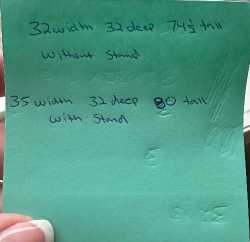 32 width 32 deep 74½ tall
without stand
35 width 32 deep 80 tall
with stand